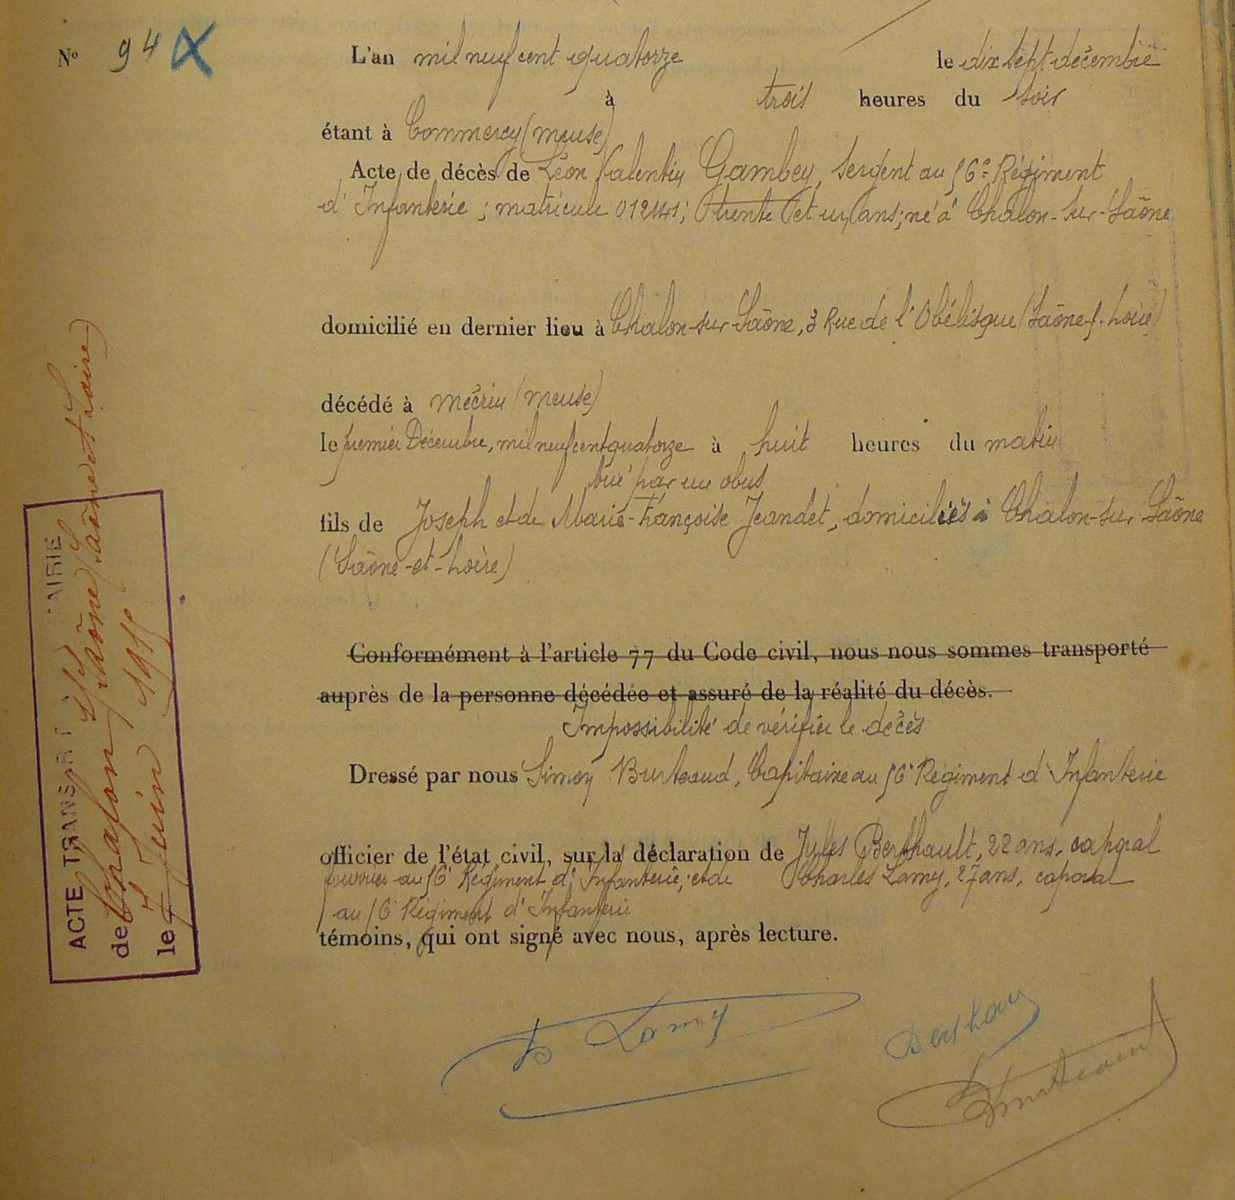 N° 94
L'an mil neuf cent quatorze le dix sept décembre
à trois heures du soir
étant à Commercy (Meuse)
Acte de décès de Léon Valentin Gambey, Sergent au 56e Régiment
d'Infanterie; matricule trente et un ans; né à Chalon-sur-Saône
domicilié en dernier lieu à Chalon-sur-Saône, 3 Rue de l'Obélisque (Saône-&-Loire)
décédé à Mécrin (Meuse)
le premier Décembre, mil neuf cent quatorze à huit heures du matin
tué par un obus
fils de Joseph et de Marie-Françoise Jeandet, domiciliés à Chalon-sur-Saône
(Saône-et-Loire)
Conformément à l'article 77 du Code civil, nous nous sommes transporté
auprès de la personne décédée et assuré de la réalité du décès.
Impossibilité de vérifier le décès
Dressé par nous Simon Burteaud, Capitaine au 56e Régiment d'Infanterie
officier de l'état civil, sur la déclaration de Jules Berthault, 22 ans, caporal
fourrier au 56e Régiment d'Infanterie, et de Charles Lamy, 27 ans, caporal
au 56e Régiment d'Infanterie
témoins, qui ont signé avec nous, après lecture.
Lamy Berthault
Burteaud
ACTE TRANSCRIT MAIRIE
de Chalon s/ Saône (Saône et Loire)
le 7 Juin 1915